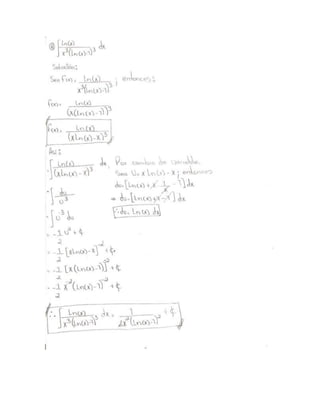 ⑧ ∫ ln(x) / x³(ln(x)-1)³ dx
Solución:
Sea f(x) = ln(x) / x³(ln(x)-1)³ ; entonces:
f(x) = ln(x) / (x(ln(x)-1))³
f(x) = ln(x) / (xln(x)-x)³
Así:
∫ ln(x) / (xln(x)-x)³ dx, Por cambio de variable.
Sea U = x ln(x) - x ; entonces
du = [ln(x) + x · 1/x - 1] dx
= ∫ du / U³
⇒ du = [ln(x) + 1 - 1] dx
= ∫ U⁻³ du
∴ du = ln(x) dx
= -1/2 U⁻² + ¢
= -1/2 [xln(x)-x]⁻² + ¢
= -1/2 [x(ln(x)-1)]⁻² + ¢
= -1/2 x⁻² (ln(x)-1)⁻² + ¢
∴ ∫ ln(x) / x³(ln(x)-1)³ dx = - 1 / 2x²(ln(x)-1)² + ¢